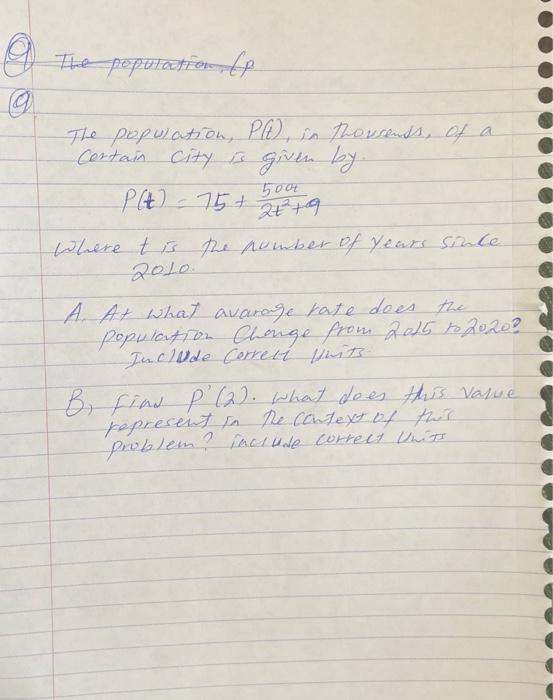 9 The population, (p
9
The population, P(t), in Thousends, of a
Certain city is given by.
P(t) = 75 + 500t / 2t²+9
Where t is the number of years since
2010.
A. At what avarage rate does the
population Change from 2015 to 2020?
Include Correct Units
B, find P'(2). what does this value
represent in the context of this
problem? include correct Units